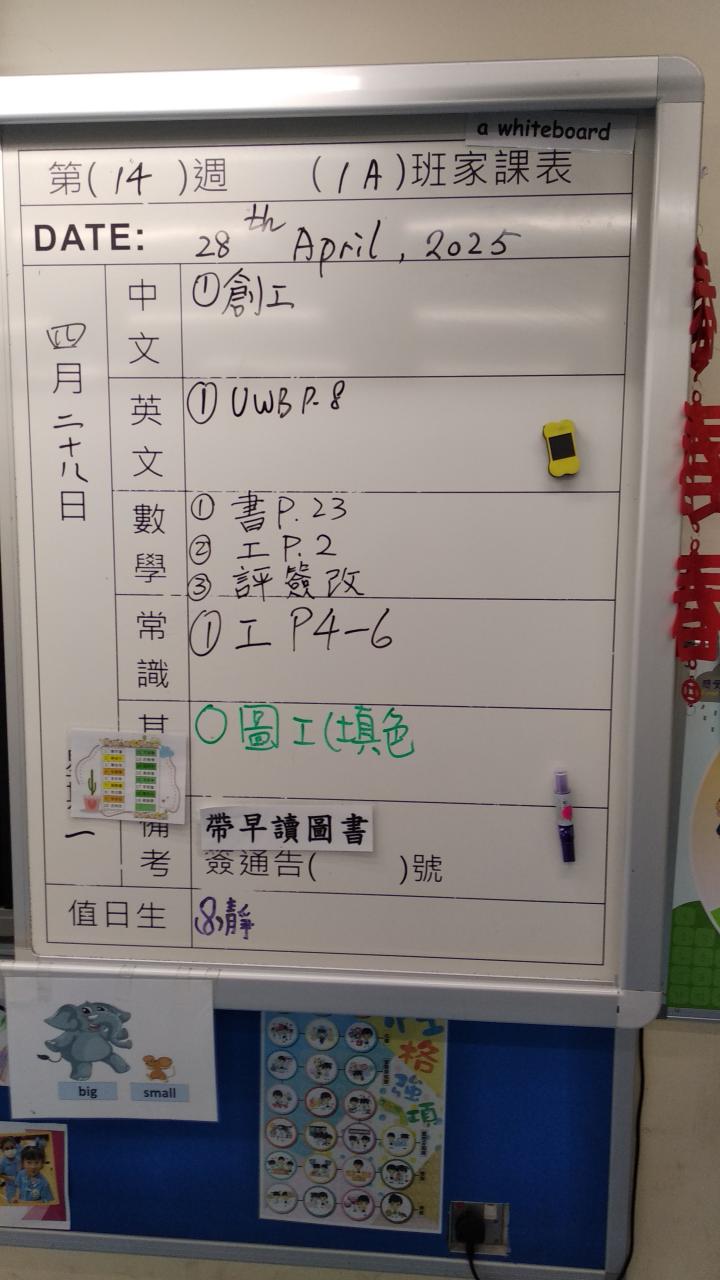 a whiteboard
第(14)週 (1A)班家課表
DATE: 28th April, 2025
四月二十八日
中文
①創工
英文
① UWB P.8
數學
① 書P.23
② 工P.2
③ 評簽改
常識
① 工P4-6
其
○圖工(填色
一
備考
帶早讀圖書
簽通告( )號
值日生
8,靜
big
small
格
強
項